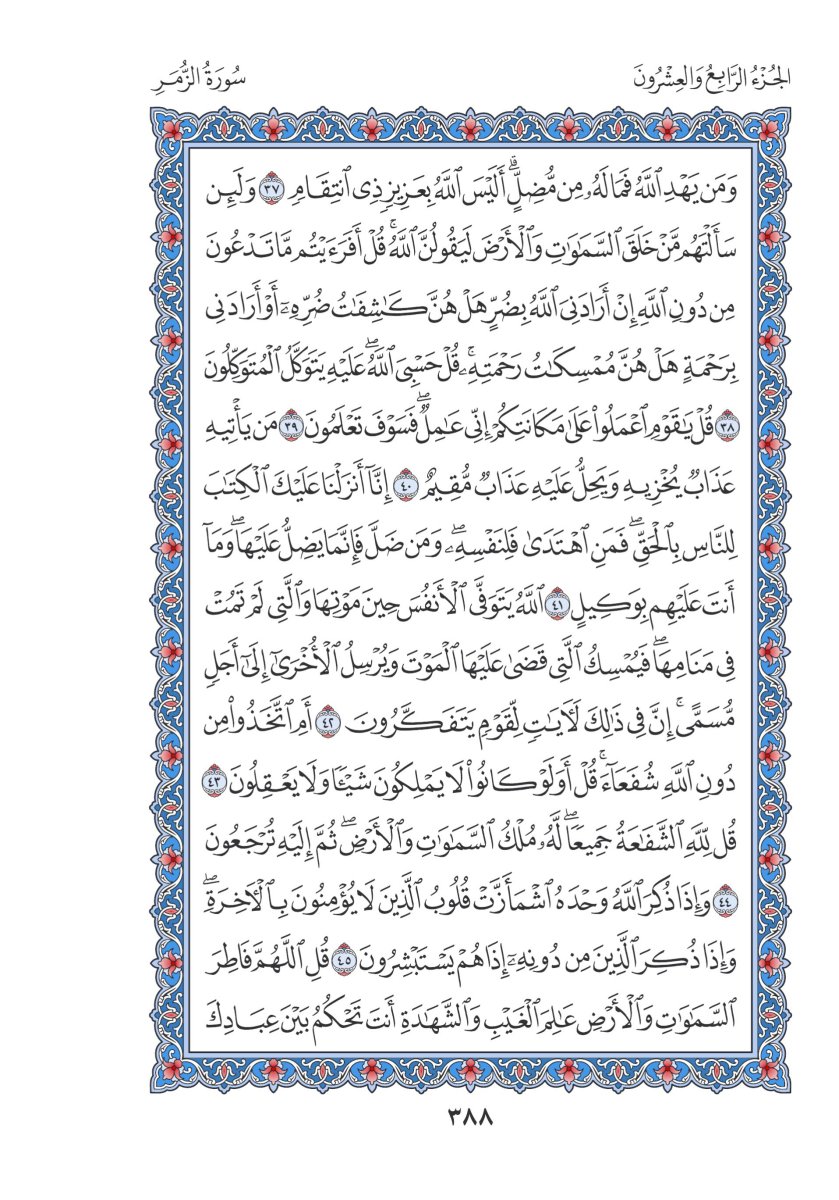 الجُزْءُ الرَّابِعُ وَالعِشْرُونَ
سُورَةُ الزُّمَرِ
وَمَن يَهْدِ ٱللَّهُ فَمَا لَهُۥ مِن مُّضِلٍّۗ أَلَيْسَ ٱللَّهُ بِعَزِيزٍ ذِى ٱنتِقَامٍ ٣٧ وَلَئِن
سَأَلْتَهُم مَّنْ خَلَقَ ٱلسَّمَٰوَٰتِ وَٱلْأَرْضَ لَيَقُولُنَّ ٱللَّهُۚ قُلْ أَفَرَءَيْتُم مَّا تَدْعُونَ
مِن دُونِ ٱللَّهِ إِنْ أَرَادَنِىَ ٱللَّهُ بِضُرٍّ هَلْ هُنَّ كَٰشِفَٰتُ ضُرِّهِۦٓ أَوْ أَرَادَنِى
بِرَحْمَةٍ هَلْ هُنَّ مُمْسِكَٰتُ رَحْمَتِهِۦۚ قُلْ حَسْبِىَ ٱللَّهُۖ عَلَيْهِ يَتَوَكَّلُ ٱلْمُتَوَكِّلُونَ
٣٨ قُلْ يَٰقَوْمِ ٱعْمَلُوا۟ عَلَىٰ مَكَانَتِكُمْ إِنِّى عَٰمِلٌۖ فَسَوْفَ تَعْلَمُونَ ٣٩ مَن يَأْتِيهِ
عَذَابٌ يُخْزِيهِ وَيَحِلُّ عَلَيْهِ عَذَابٌ مُّقِيمٌ ٤٠ إِنَّآ أَنزَلْنَا عَلَيْكَ ٱلْكِتَٰبَ
لِلنَّاسِ بِٱلْحَقِّۖ فَمَنِ ٱهْتَدَىٰ فَلِنَفْسِهِۦۖ وَمَن ضَلَّ فَإِنَّمَا يَضِلُّ عَلَيْهَاۖ وَمَآ
أَنتَ عَلَيْهِم بِوَكِيلٍ ٤١ ٱللَّهُ يَتَوَفَّى ٱلْأَنفُسَ حِينَ مَوْتِهَا وَٱلَّتِى لَمْ تَمُتْ
فِى مَنَامِهَاۖ فَيُمْسِكُ ٱلَّتِى قَضَىٰ عَلَيْهَا ٱلْمَوْتَ وَيُرْسِلُ ٱلْأُخْرَىٰٓ إِلَىٰٓ أَجَلٍ
مُّسَمًّىۚ إِنَّ فِى ذَٰلِكَ لَءَايَٰتٍ لِّقَوْمٍ يَتَفَكَّرُونَ ٤٢ أَمِ ٱتَّخَذُوا۟ مِن
دُونِ ٱللَّهِ شُفَعَآءَۚ قُلْ أَوَلَوْ كَانُوا۟ لَا يَمْلِكُونَ شَيْـًٔا وَلَا يَعْقِلُونَ ٤٣
قُل لِّلَّهِ ٱلشَّفَٰعَةُ جَمِيعًاۖ لَّهُۥ مُلْكُ ٱلسَّمَٰوَٰتِ وَٱلْأَرْضِۖ ثُمَّ إِلَيْهِ تُرْجَعُونَ
٤٤ وَإِذَا ذُكِرَ ٱللَّهُ وَحْدَهُ ٱشْمَأَزَّتْ قُلُوبُ ٱلَّذِينَ لَا يُؤْمِنُونَ بِٱلْءَاخِرَةِۖ
وَإِذَا ذُكِرَ ٱلَّذِينَ مِن دُونِهِۦٓ إِذَا هُمْ يَسْتَبْشِرُونَ ٤٥ قُلِ ٱللَّهُمَّ فَاطِرَ
ٱلسَّمَٰوَٰتِ وَٱلْأَرْضِ عَٰلِمَ ٱلْغَيْبِ وَٱلشَّهَٰدَةِ أَنتَ تَحْكُمُ بَيْنَ عِبَادِكَ
٣٨٨